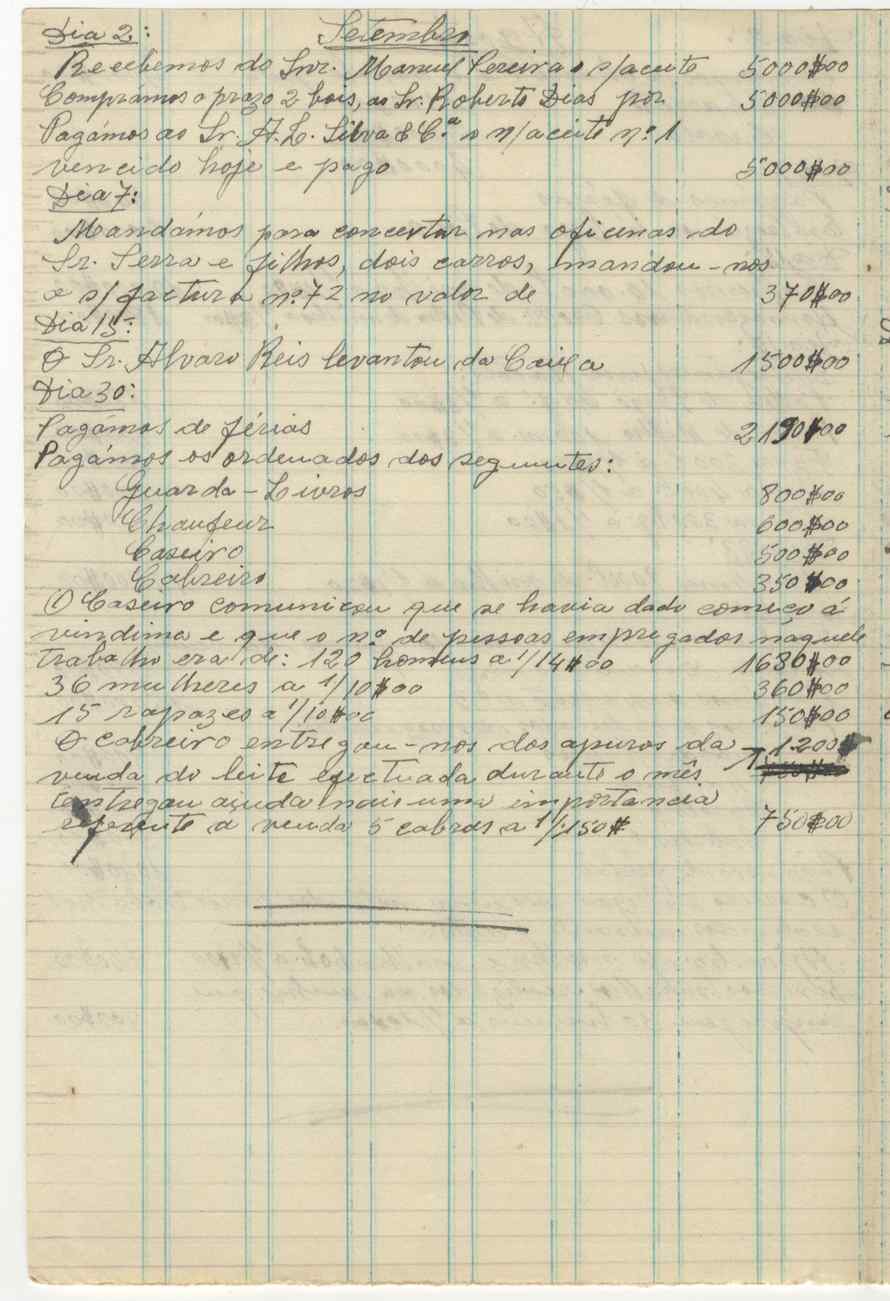 Dia 2: Setembro
Recebemos do Snr. Manuel Pereira o s/aceite 5000$00
Comprámos a prazo 2 bois, ao Sr. Roberto Dias por 5000$00
Pagámos ao Sr. A. L. Silva & C.ª o n/aceite n.º 1
vencido hoje e pago 5000$00
Dia 7:
Mandámos para concertar nas oficinas do
Sr. Serra e filhos, dois carros, mandou-nos
a s/factura n.º 72 no valor de 370$00
Dia 15:
O Sr. Alvaro Reis levantou da Caixa 1500$00
Dia 30:
Pagámos de férias 2190$00
Pagámos os ordenados dos seguintes:
Guarda-Livros 800$00
Chaufeur 600$00
Caseiro 500$00
Cabreiro 350$00
O Caseiro comunicou que se havia dado começo á
vindima e que o n.º de pessoas empregados náquele
trabalho era de: 120 homens a 1/14$00 1680$00
36 mulheres a 1/10$00 360$00
15 rapazes a 1/10$00 150$00
O cabreiro entregou-nos dos apuros da 1.200$
venda do leite efectuada durante o mês
entregou ainda mais uma importancia
referente a venda 5 cabras a 1/150$ 750$00